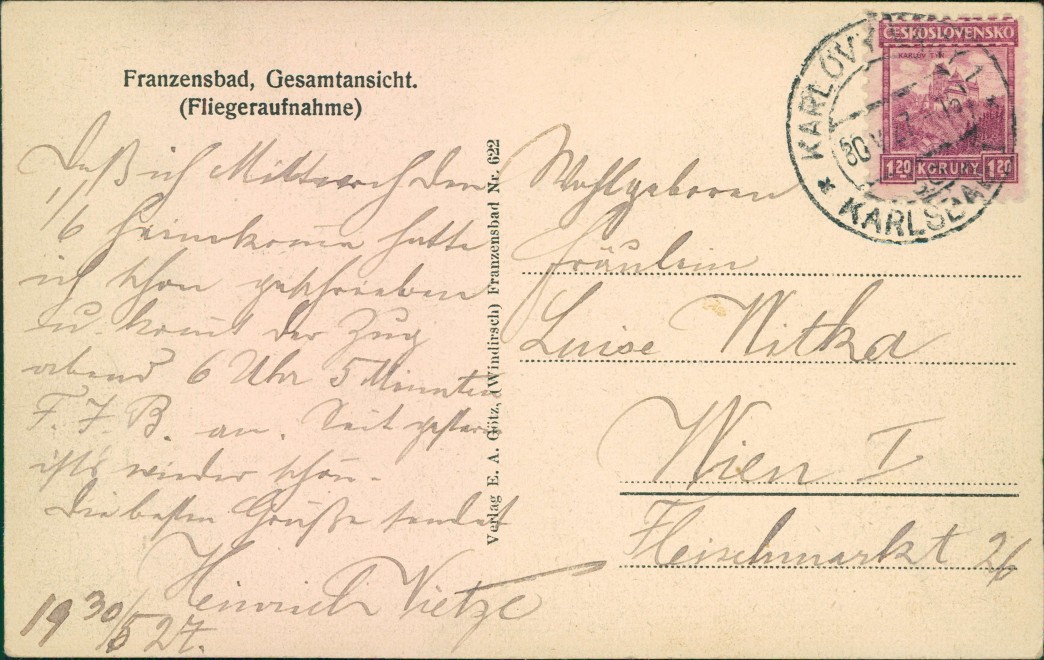 Franzensbad, Gesamtansicht.
(Fliegeraufnahme)
Daß ich Mittwoch den
1/6 heimkomme hatte
ich schon geschrieben
u. kommt der Zug
abend 6 Uhr 5 Minuten
F. J. B. an. Seit gestern
ists wieder schön.
Die besten Grüße sendet
Heinrich Vietze
19 30/5 27.
Verlag E. A. Götz, (Windirsch) Franzensbad Nr. 622
Wohlgeboren
Fräulein
Luise Nitka
Wien I
Fleischmarkt 26
ČESKOSLOVENSKO
KARLŮV TÝN
1·20 KORUNY 1·20
KARLOVY
KARLSBAD